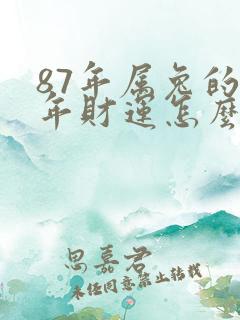 87年属兔的
年财运怎麽
思嘉君
未经同意禁止转载